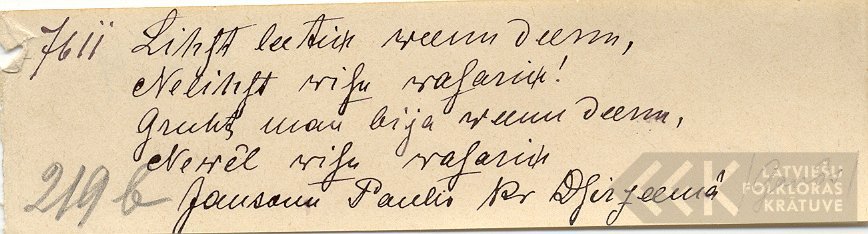 7611 Lihst leetiņ weenu deenu,
Nelihst wisu wasariņ!
Gruhts man bija weenu deenu,
Newēl wisu wasariņ
219 b Jansonu Paulis Kr Dsirzeemā
LATVIEŠU
FOLKLORAS
KRĀTUVE